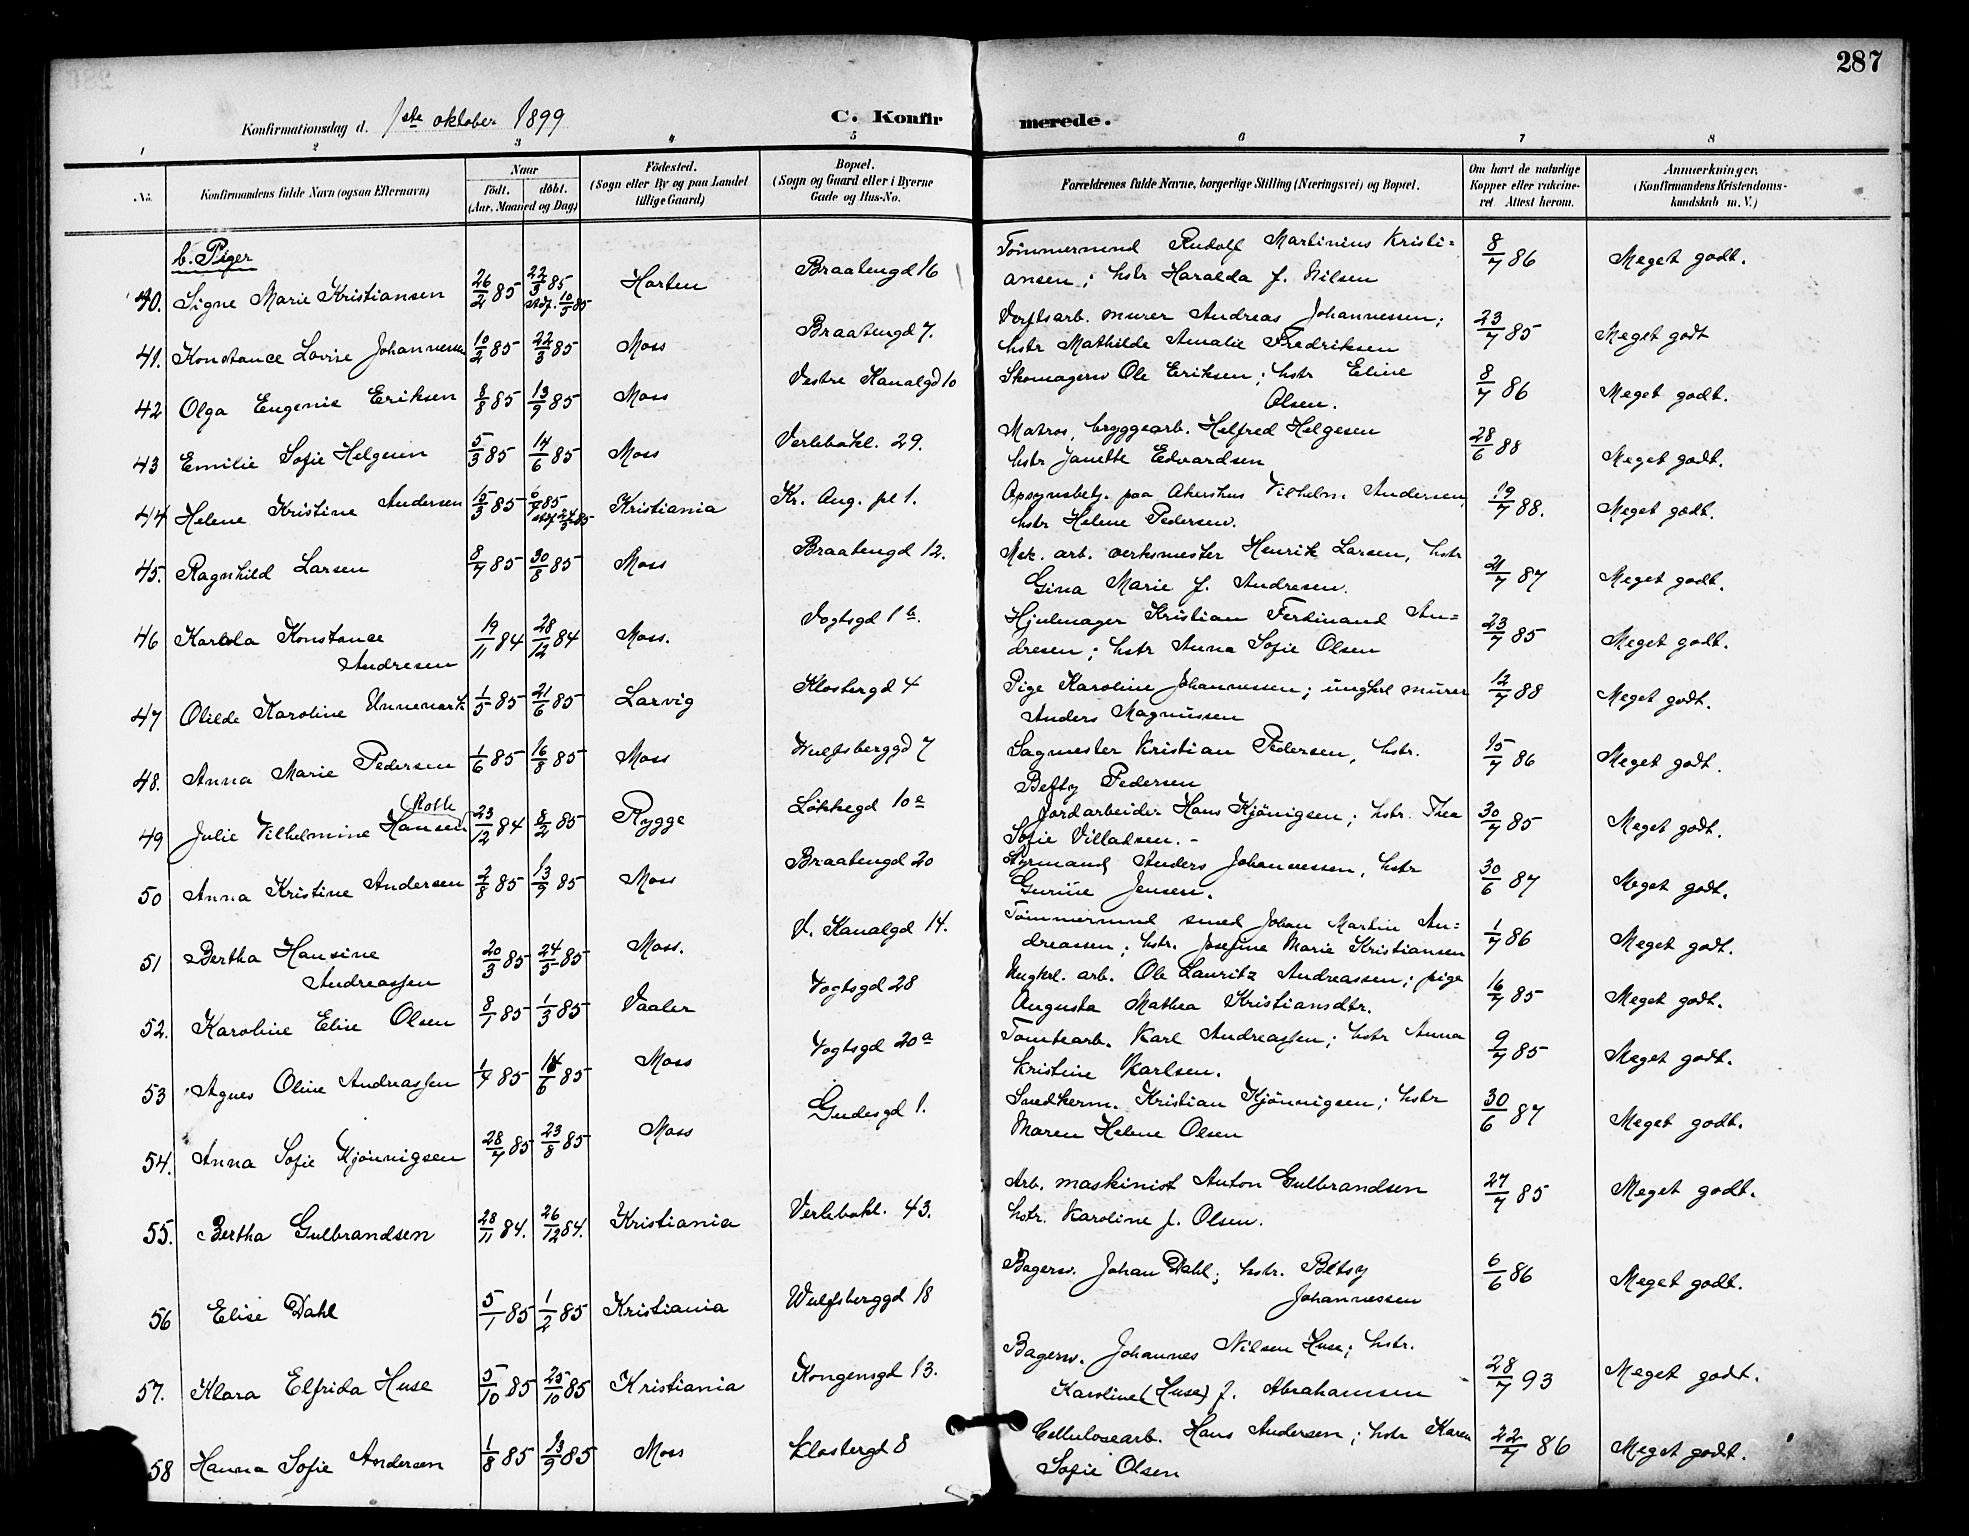 287
Konfirmationsdag d. 1ste oktober 1899
C. Konfirmerede.
1 2 3 4 5 6 7 8
No.
Konfirmandens fulde Navn (ogsaa Efternavn)
Naar
födt. döbt.
(Aar, Maaned og Dag)
Födested.
(Sogn eller By og paa Landet
tillige Gaard)
Bopæl.
(Sogn og Gaard eller i Byerne
Gade og Hus-No.
Forældrenes fulde Navne, borgerlige Stilling (Næringsvei) og Bopæl.
Om havt de naturlige
Kopper eller vakcine-
ret Attest herom.
Anmærkninger.
(Konfirmandens Kristendoms-
kundskab m. V.)
b. Piger
40. Signe Marie Kristiansen 26/2 85 22/3 85 stdf. 10/5 85 Horten Braatengd 16 Tömmermand Rudolf Martinius Kristi=
ansen; hstr Haralda f. Nilsen 8/7 86 Meget godt.
41. Konstance Lovise Johannessen 10/2 85 22/3 85 Moss Braatengd 7. Verftsarb. murer Andreas Johannessen;
hstr Mathilde Amalie Fredriksen 23/7 85 Meget godt
42 Olga Eugenie Eriksen 8/8 85 13/9 85 Moss Vestre Kanalgd 10 Skomagersv Ole Eriksen; hstr Eline
Olsen. 8/7 86 Meget godt.
43 Emilie Sofie Helgesen 5/3 85 14/6 85 Moss Verlebakl. 29. Matros, bryggearb. Helfred Helgesen
hstr Janette Edvardsen 28/6 88 Meget godt.
44 Helene Kristine Andersen 15/3 85 6/4 85 stdf 24/5 85 Kristiania Kr. Aug. pl 1. Opsynsbetj. paa Akershus Vilhelm Andersen,
hstr Helene Pedersen. 19/7 88. Meget godt.
45. Ragnhild Larsen 8/7 85 30/8 85 Moss Braatengd 12. Mek. arb. verksmester Henrik Larsen, hstr
Gina Marie f. Andresen. 21/7 87 Meget godt.
46 Karola Konstance
Andresen 19/11 84 28/12 84 Moss. Vogtsgd 1b. Hjulmager Kristian Ferdinand An=
dresen; hstr Anna Sofie Olsen 23/7 85 Meget godt.
47 Olilde Karoline Unnemark 1/5 85 21/6 85 Larvig Klostergd 4 Pige Karoline Johannessen; ungkrl murer
Anders Magnussen 12/7 88 Meget godt.
48. Anna Marie Pedersen 1/6 85 16/8 85 Moss Wulfsberggd 7 Sagmester Kristian Pedersen, hstr.
Betty Pedersen 15/7 86 Meget godt.
49 Julie Vilhelmine Hansen (Rolle 23/12 84 8/2 85 Rygge Løkkegd 10a Jordarbeider Hans Kjönigsen; hstr. Thea
Sofie Villadsen. - 30/7 85 Meget godt.
50 Anna Kristine Andersen 2/8 85 13/9 85 Moss Braatengd 20 Styrmand Anders Johannessen, hstr
Gurine Jensen. 30/6 87 Meget godt.
51 Bertha Hansine
Andreassen 20/3 85 24/5 85 Moss. V. Kanalgd 14. Tömmermand smed Johan Martin An=
dreassen; hstr. Josefine Marie Kristiansen 1/7 86 Meget godt.
52. Karoline Elise Olsen 8/1 85 1/3 85 Vaaler Vogtsgd 28 Ungkrl. arb. Ole Lauritz Andreassen; pige
Augusta Mathea Kristiansdtr. 16/7 85 Meget godt.
53 Agnes Oline Andreassen 1/4 85 14/6 85 Moss Vogtsgd 20a Tomtearb. Karl Andreassen; hstr Anna
Kristine Karlsen. 9/7 85 Meget godt.
54. Anna Sofie Kjönnigsen 28/7 85 23/8 85 Moss Gudesgd 1. Snedkerm. Kristian Kjönnigsen; hstr
Maren Helene Olsen 30/6 87 Meget godt.
55. Bertha Gulbrandsen 28/11 84. 26/12 84. Kristiania Verlebakl. 43. Arb. maskinist Anton Gulbrandsen
hstr. Karoline f. Olsen. 27/7 85 Meget godt.
56 Elise Dahl 5/1 85 1/2 85 Kristiania Wulfsberggd 18 Bagersv. Johan Dahl; hstr. Betsy
Johannessen 6/6 86 Meget godt.
57. Klara Elfrida Huse 5/10 85 25/10 85 Kristiania Kongensgd 13. Bagersv. Johannes Nilsen Huse; hstr.
Karoline (Huse) f. Abrahamsen 28/7 93 Meget godt.
58 Hanna Sofie Andersen 1/8 85 13/9 85 Moss Klostergd 8 Cellulosearb. Hans Andersen; hstr Karen
Sofie Olsen 22/7 86 Meget godt.